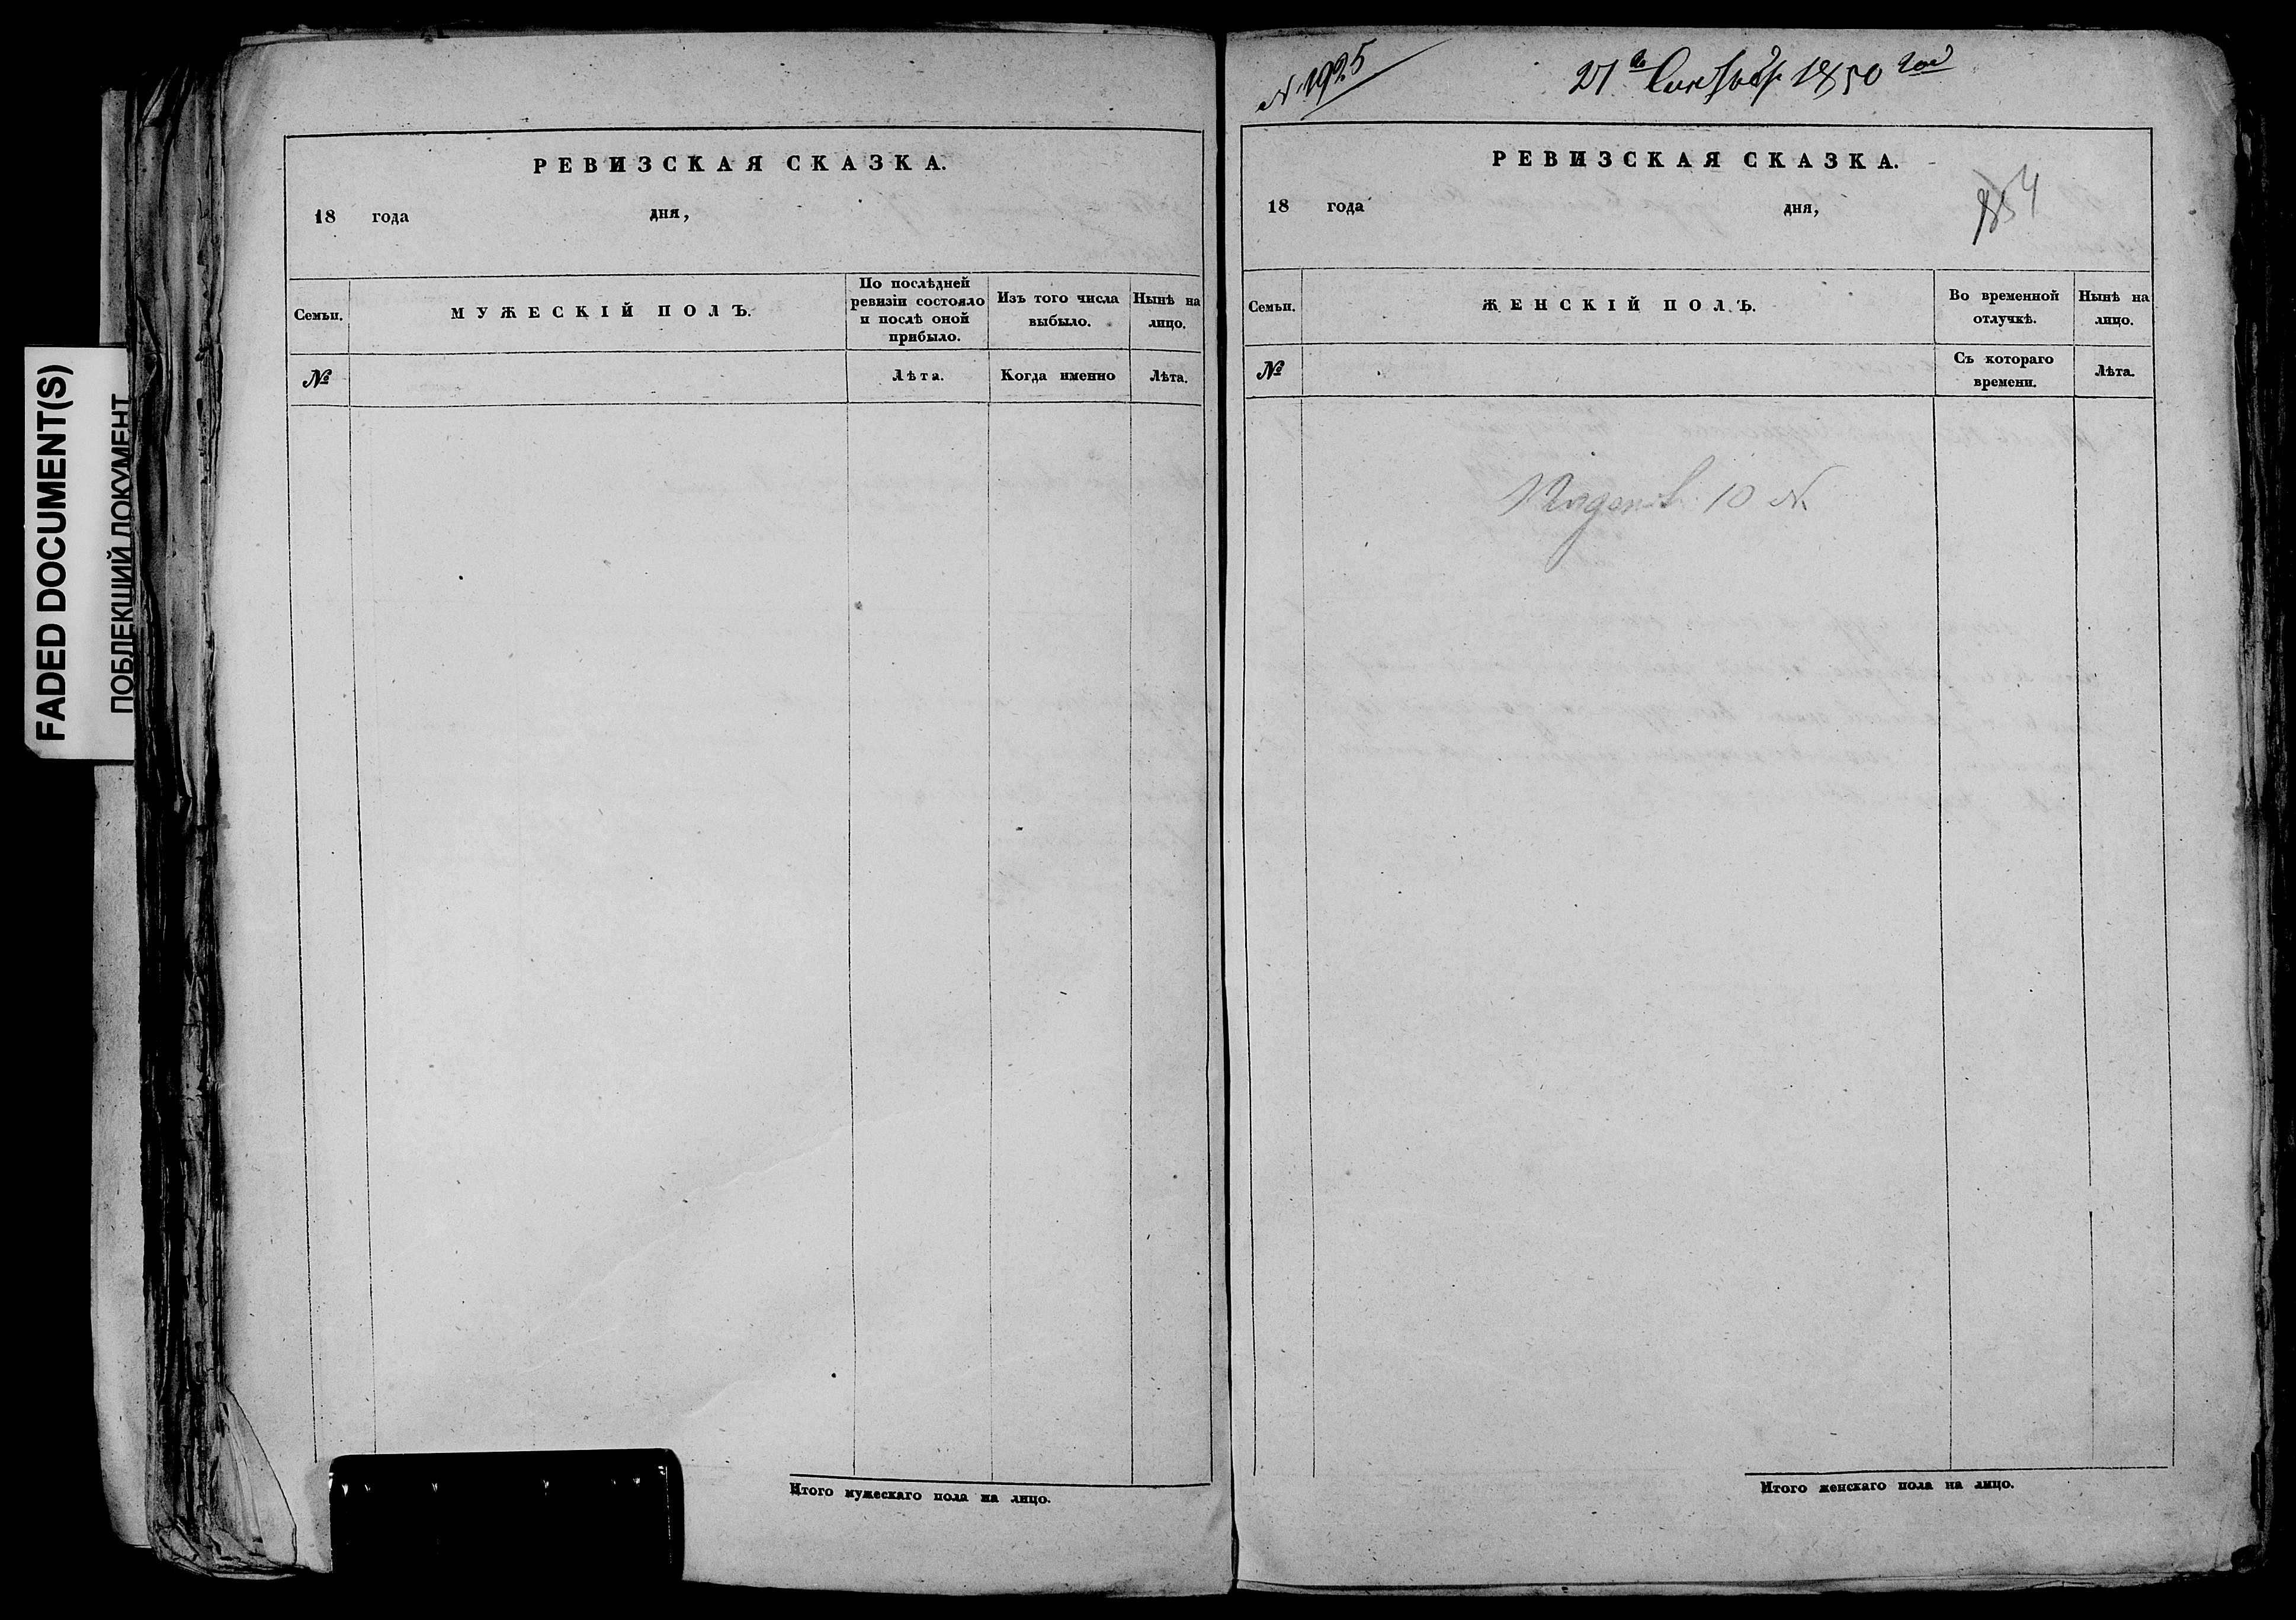 FADED DOCUMENT(S)
ПОБЛЕКШИЙ ДОКУМЕНТ
РЕВИЗСКАЯ СКАЗКА.
18 года дня,
Семьи.
МУЖЕСКІЙ ПОЛЪ.
По послѣдней
ревизіи состояло
и послѣ оной
прибыло.
Изъ того числа
выбыло.
Нынѣ на
лицо.
№
Лѣта.
Когда именно
Лѣта.
Итого мужескаго пола на лицо.
N 1925
21го 1850 года
РЕВИЗСКАЯ СКАЗКА.
18 года дня,
854
Семьи.
ЖЕНСКІЙ ПОЛЪ.
Во временной
отлучкѣ.
Нынѣ на
лицо.
№
Съ котораго
времени.
Лѣта.
10 №
Итого женскаго пола на лицо.